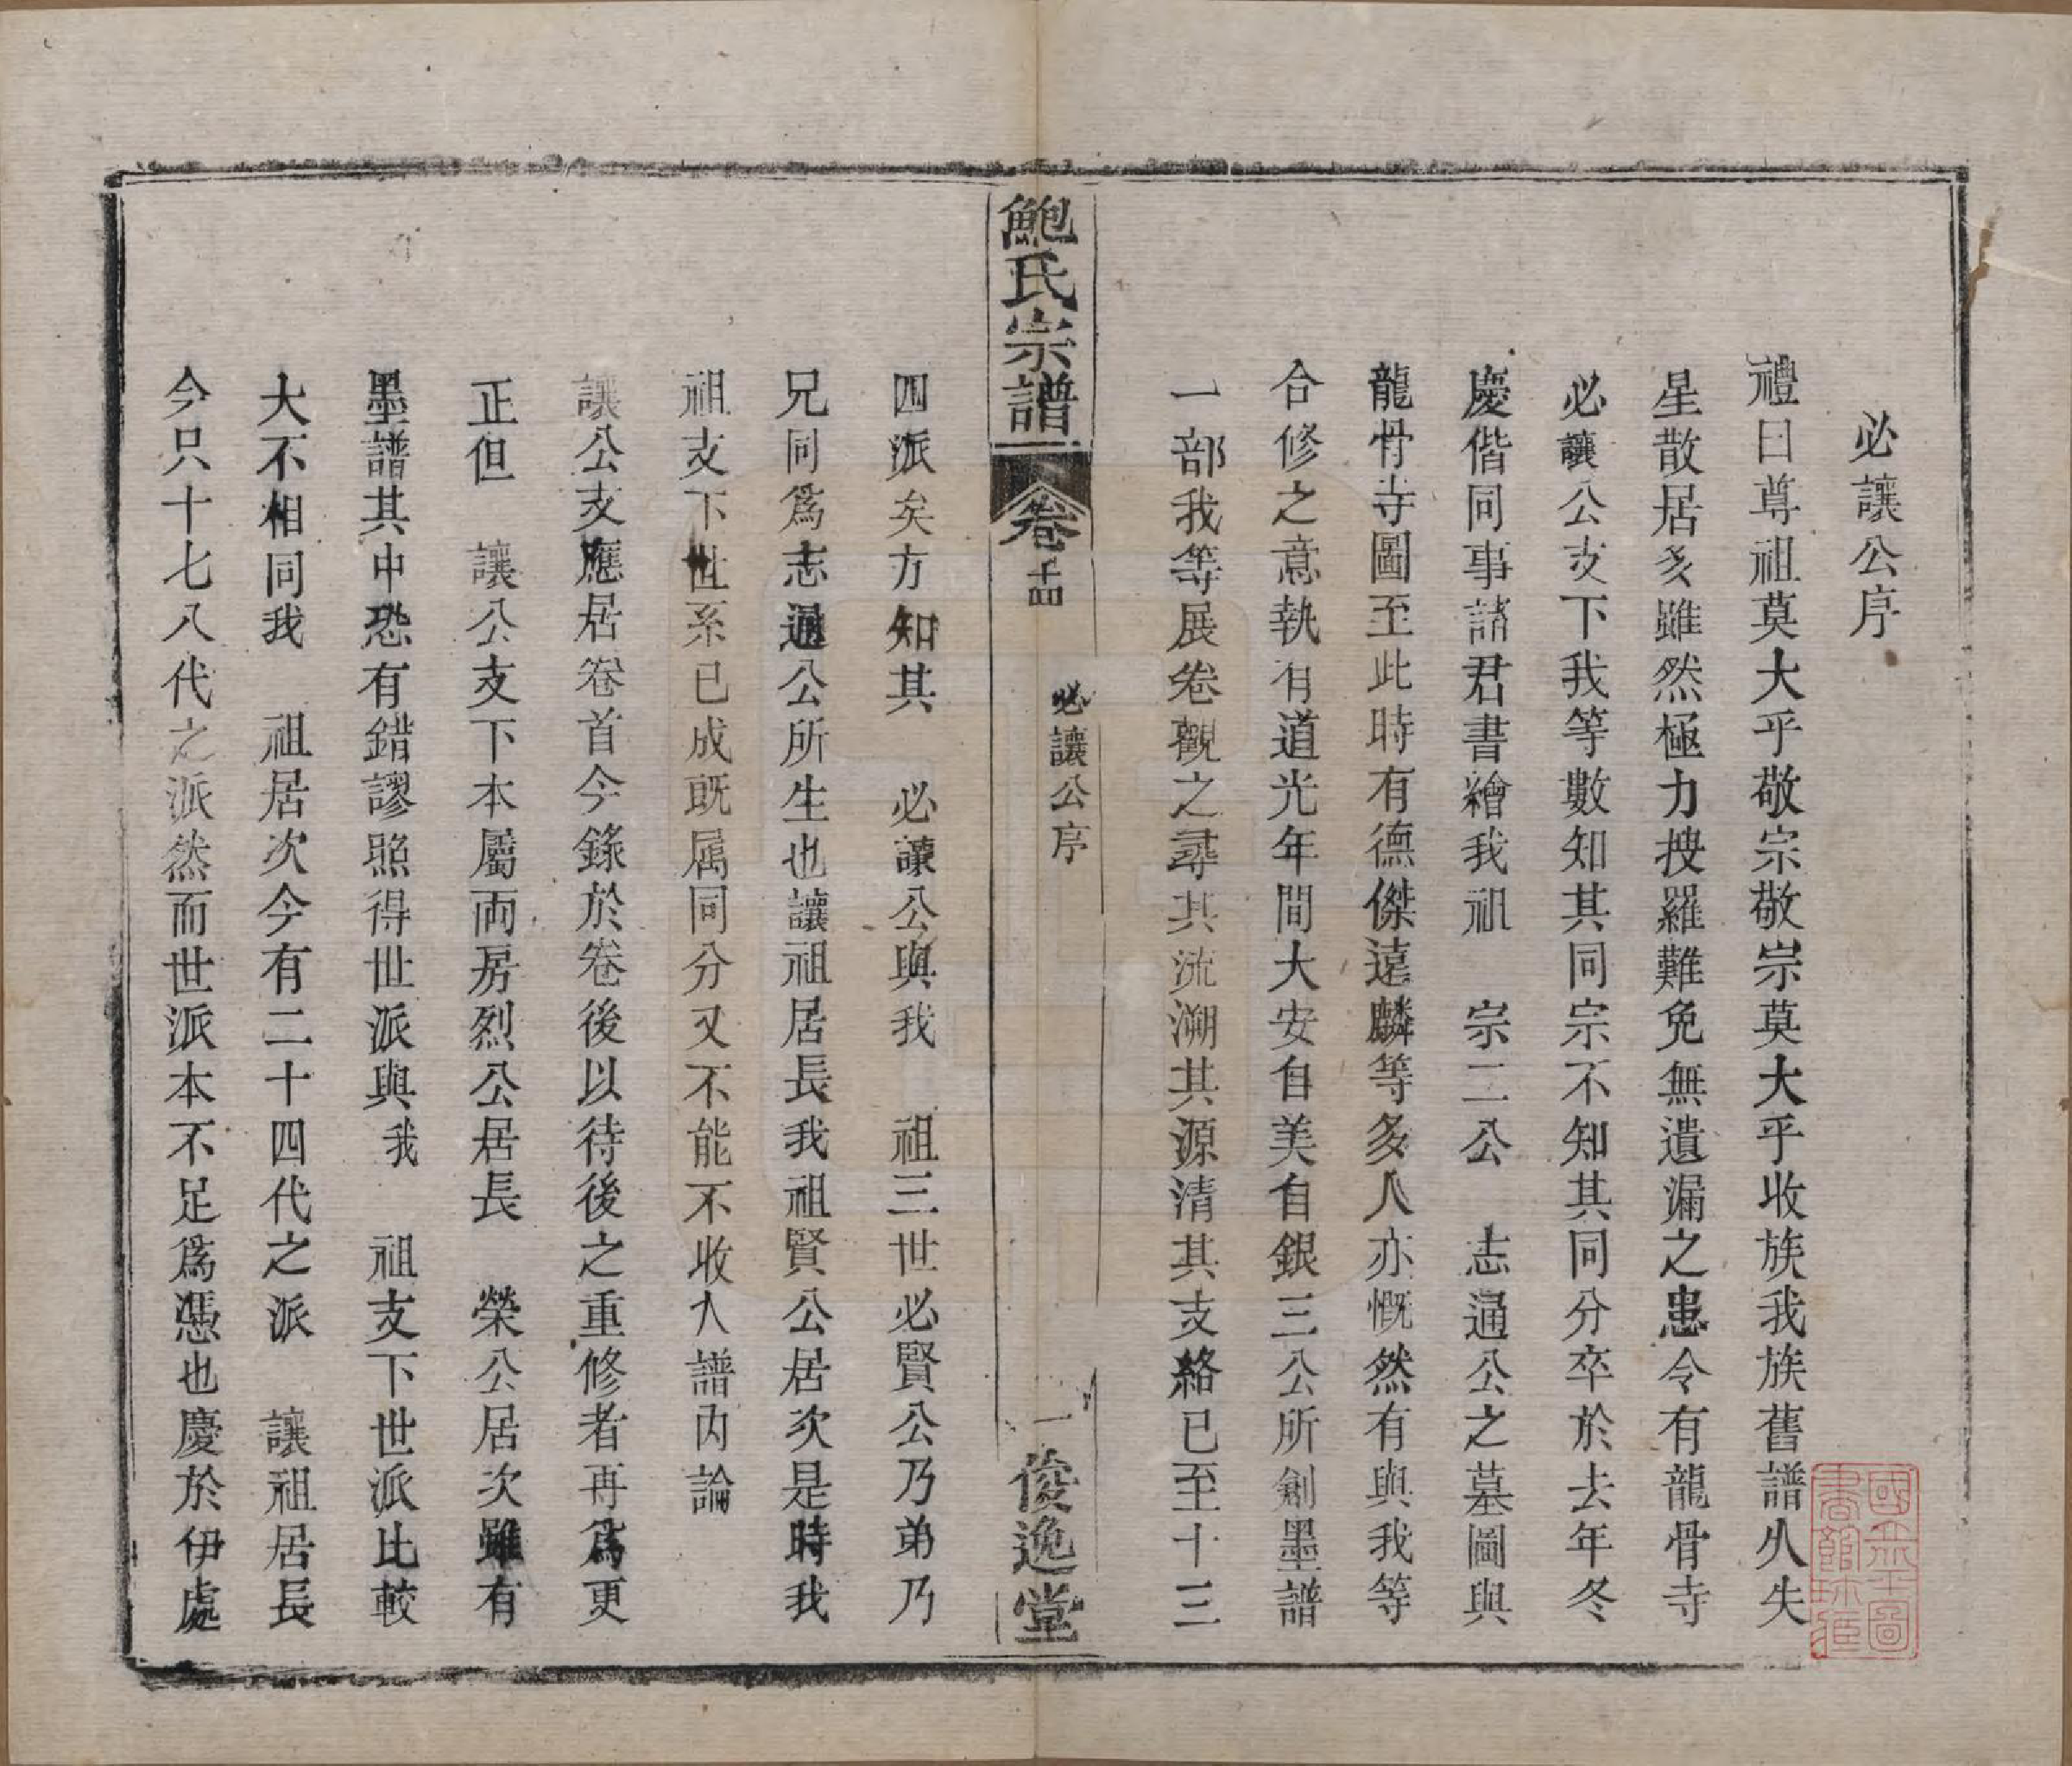 必讓公序
禮曰尊祖莫大乎敬宗敬宗莫大乎收族我族舊譜久失
星散居多雖然極力搜羅難免無遺漏之患今有龍骨寺
必讓公支下我等數知其同宗不知其同分卒於去年冬
慶偕同事諸君書繪我祖　宗二公　志通公之墓圖與
龍骨寺圖至此時有德傑遠麟等多人亦慨然有與我等
合修之意執有道光年間大安自美自銀三公所創墨譜
一部我等展卷觀之尋其流溯其源清其支絡已至十三
鮑氏宗譜
卷十四
必讓公序
一
俊逸堂
四派矣方知其　必讓公與我　祖三世必賢公乃弟乃
兄同爲志通公所生也讓祖居長我祖賢公居次是時我
祖支下世系已成既属同分又不能不收入譜內論
讓公支應居卷首今錄於卷後以待後之重修者再爲更
正但　讓公支下本屬両房烈公居長　榮公居次雖有
墨譜其中恐有錯謬照得世派與我　祖支下世派比較
大不相同我　祖居次今有二十四代之派　讓祖居長
今只十七八代之派然而世派本不足爲憑也慶於伊處
國立北平圖
書館珍藏